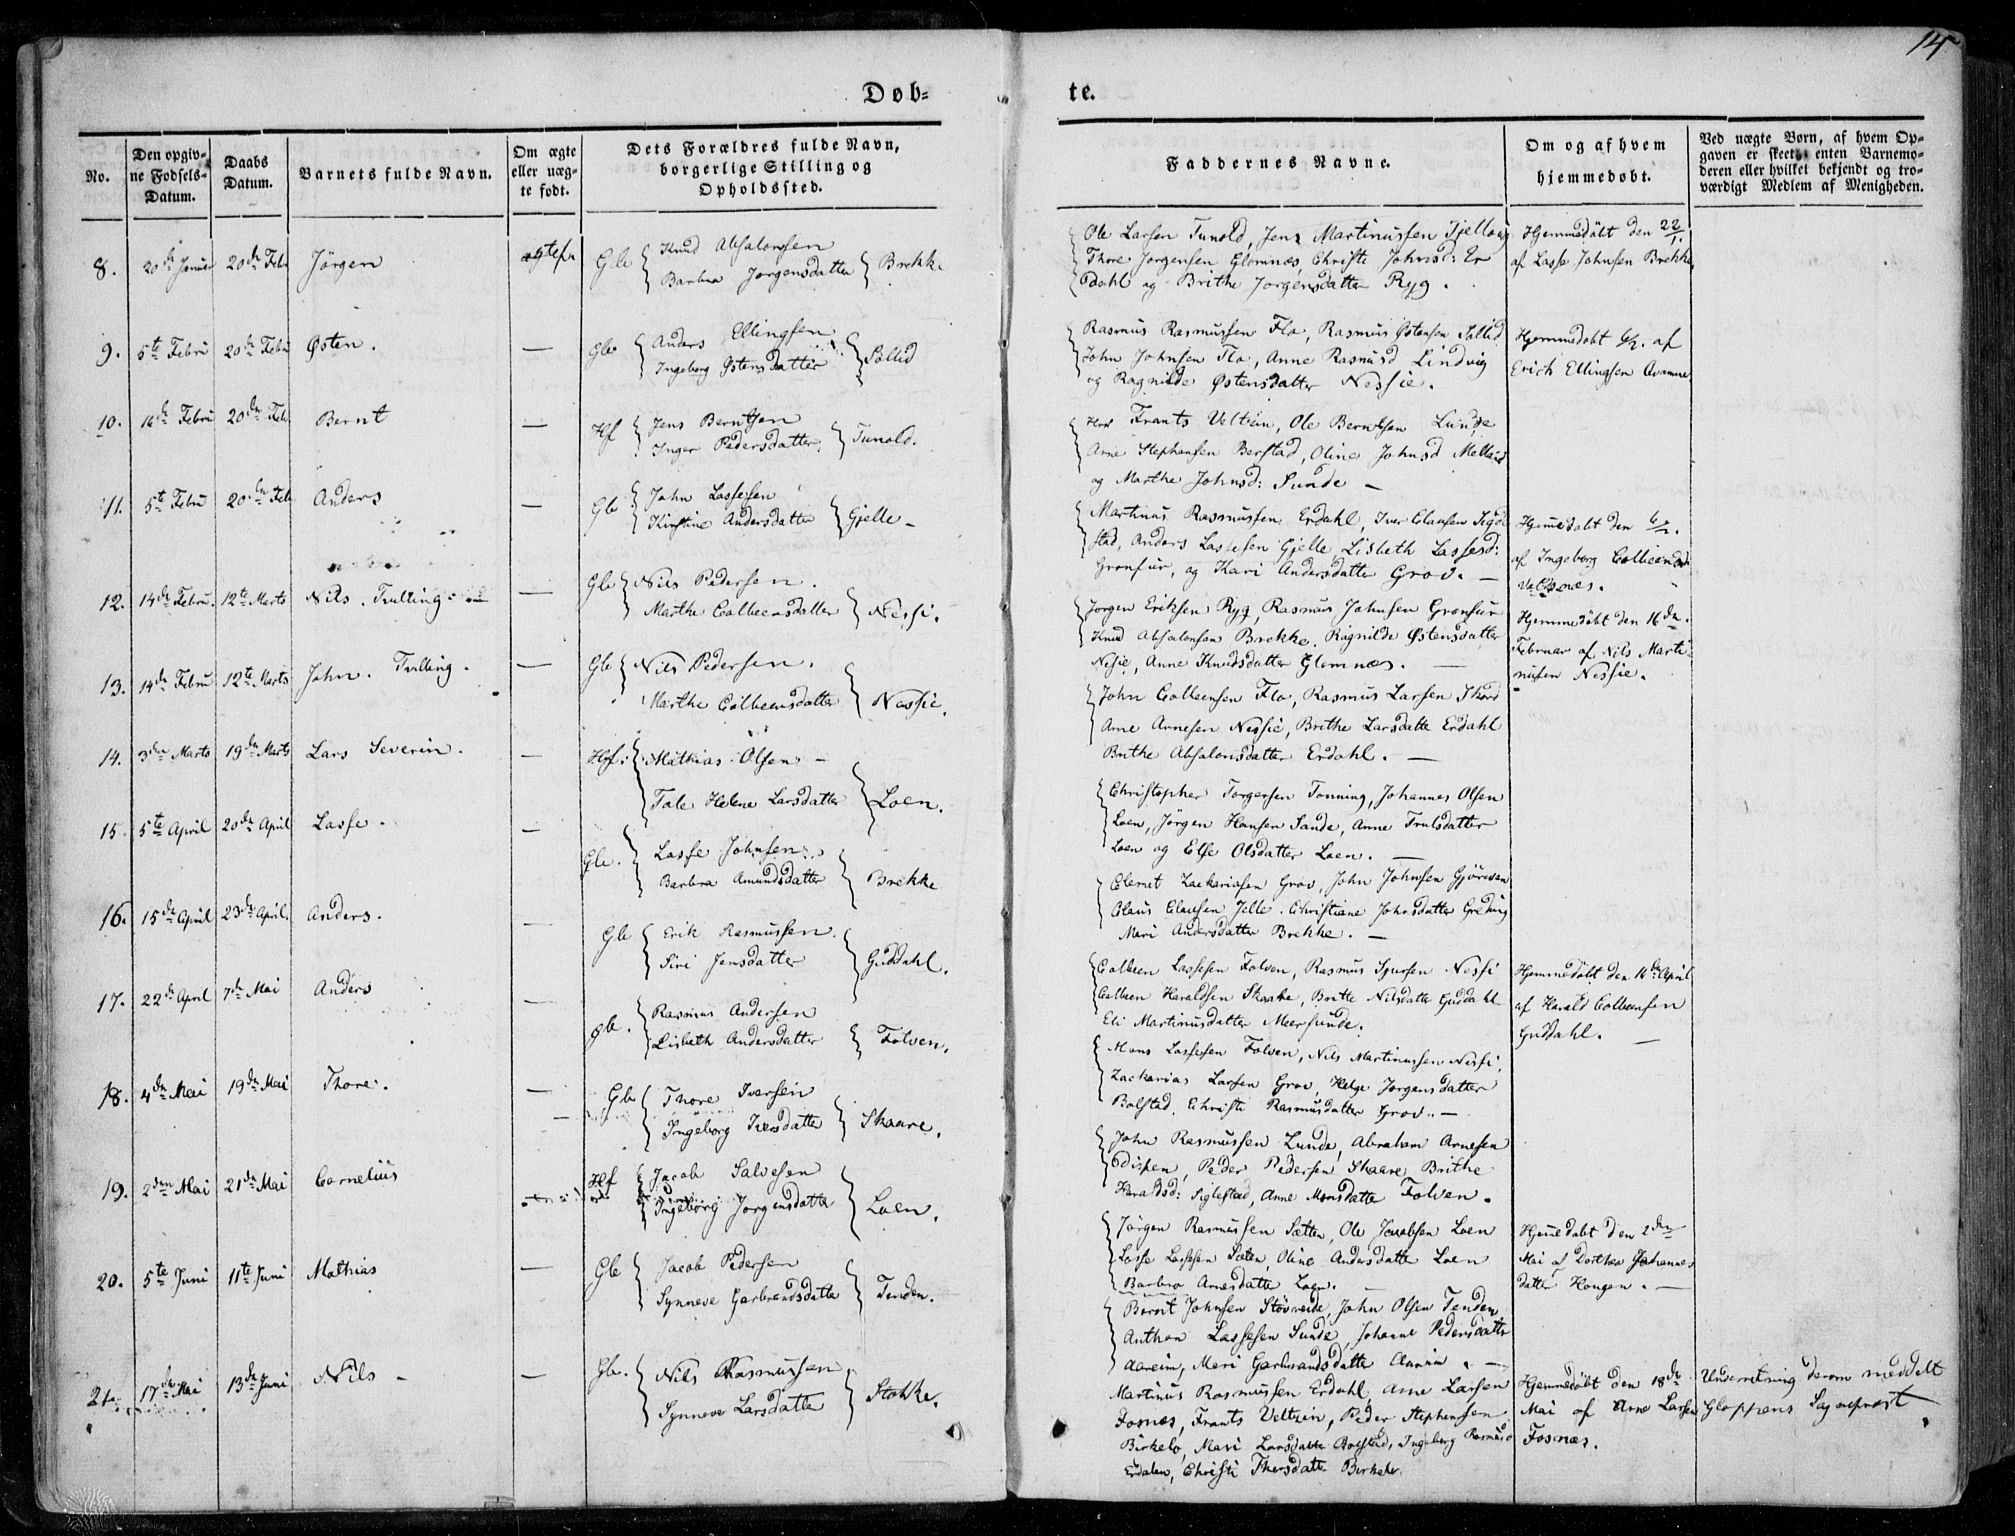 14
Døb-
te.
No.
Den opgiv-
ne Fødsels-
Datum.
Daabs
Datum.
Barnets fulde Navn.
Om ægte
eller uæg-
te født.
Dets Forældres fulde Navn,
borgerlige Stilling og
Opholdssted.
Faddernes Navne.
Om og af hvem
hjemmedøbt.
Ved uægte Børn, af hvem Op-
gaven er skeet, enten Barnemo-
deren eller hvilket bekjendt og tro-
værdigt Medlem af Menigheden.
8. 20de Januar 20de Febr Jörgen ægtef. Gb Knud Absalonsen
Barbra Jørgensdatter Brekke
Ole Larsen Tunold, Jens Martinussen Tjellaug
Thore Jørgensen Glomnæs, Christi Johnsd: Er
dahl og Brithe Jørgensdatter Ryg.
Hjemmedöbt den 22/1.
af Lasse Johnsen Brekke
9. 5te Febru 20de Febru Østen. — Gb Anders Ellingsen
Ingeborg Østensdatter Sollid
Rasmus Rasmussen Flo, Rasmus Østensen Sollid
John Johnsen Flo, Anne Rasmusd Lindvig
og Ragnilde Østensdatter Nessie.
Hjemmedøbt 6/2. af
Erich Ellingsen Avamme
10. 16de Febru 20de Feb Bernt — Hf Jens Berntsen
Inger Pedersdatter Tunold.
Herr Frants Veltzin, Ole Berntsen Lunde
Arne Stephansen Berstad, Oline Johnsd Melland
og Marthe Johnsd: Sunde —
11. 5te Febru 20de Feb Anders — Gb John Lassesen
Kirstine Andersdatter Gjelle —
Martinus Rasmussen Erdahl, Iver Clausen Sigde
stad, Anders Lassesen Gjelle, Lisbeth Lassesd:
Gronfur, og Kari Andersdatter Grov. —
Hjemmedøbt den 6/2.
af Ingeborg Colbeensd
Valdsnæs.
12. 14de Febru. 12te Marts Nils. Tvilling — Gb Nils Pedersen.
Marthe Colbeensdatter Nessi.
Jørgen Eriksen Ryg, Rasmus Johnsen Gronfur
Knud Absalonsen Brekke, Ragnilde Østensdatter
Nesie, Anne Knudsdatter Glomnæs. —
Hjemmedöbt den 16de
Februar af Nils Marti-
nusen Nessie.
13. 14de Febru 12te Marts John. Tvilling. — Gb Nils Pedersen.
Marthe Colbeensdatter Nessie.
John Colbeensen Flo, Rasmus Larsen Skaar
Arne Arnesen Nessie, Brithe Larsdatte Erdahl
Brithe Absalonsdatter Erdahl. —
14. 3den Marts 19de Marts Lars Severin. — Hf: Mathias Olsen —
Tale Helene Larsdatter Loen.
Christopher Torgersen Tonning, Johannes Olsen
Loen, Jörgen Hansen Sande, Anne Trulsdatter
Loen og Else Olsdatter Loen. —
15. 5te April 20de April Lasse. — Gb. Lasse Johnsen
Barbra Amundsdatter Brekke
Clemet Zackariasen Grov, John Johnsen Gjörven
Claus Clausen Jelle. Christiane Johnsdatter Greding
Mari Andersdatter Brekke. —
16. 15de April 23de April. Anders. — Gb Erik Rasmussen.
Siri Jensdatter Guddahl.
Colbeen Lassesen Folven, Rasmus Sjursen Nessi
Colbeen Haraldsen Skaare, Britte Nilsdatter Guddahl
Eli Martinusdatter Meersunde.
Hjemmedöbt den 16de April
af Harald Colbeensen
Guddahl. —
17. 22de April 7de Mai Anders — gb. Rasmus Andersen
Lisbeth Andersdatter Folven.
Mons Lassesen Folven, Nils Martinussen Nessi,
Zackarias Larsen Grov, Helge Jørgensdatter
Bolstad, Christi Rasmusdatter Grov. —
18. 4de Mai 19de Mai Thore. — Gb Thore Iversen
Ingeborg Iversdatter Skaare.
John Rasmussen Lunde, Abraham Arnesen
Dispen, Peder Pedersen Skaare, Brithe
Haraldsd: Siglestad, Anne Monsdatter Folven.
19. 2den Mai 21de Mai Cornelius Hf Jacob Salvesen
Ingeborg Jørgensdatter Loen.
Jørgen Rasmussen Sætten, Ole Jacobsen Loen
Lasse Lassesen Sæten, Oline Andersdatter Loen
Barbro Arnesdatter Loen. —
Hjemmedøbt den 2den
Mai af Dorthea Johannes
datter Hougen. —
20. 5te Juni 11te Juni Mathias — Gb Jacob Pedersen
Synneve Garbrandsdatte Tenden.
Bernt Johnsen Støvreide, John Olsen Tenden
Anthon Lassesen Sunde, Johanne Pedersdatte
Aareim, Mari Garbrandsdatte Aareim. —
21. 17de Mai 13de Juni Nils — Gb. Nils Rasmussen
Synneve Larsdatter Stokke.
Martinus Rasmussen Erdahl, Arne Larsen
Fosnæs, Frants Veltzin, Peder Stephensen
Birkelo, Mari Larsdatte Bolstad, Ingeborg Rasmusd
Erdalen, Christi Thorsdatte Birkelo.
Hjemmedöbt den 18de
Mai af Arne Larsen
Fosnæs.
Underretning derom meddelt
Gloppens Sogneprest